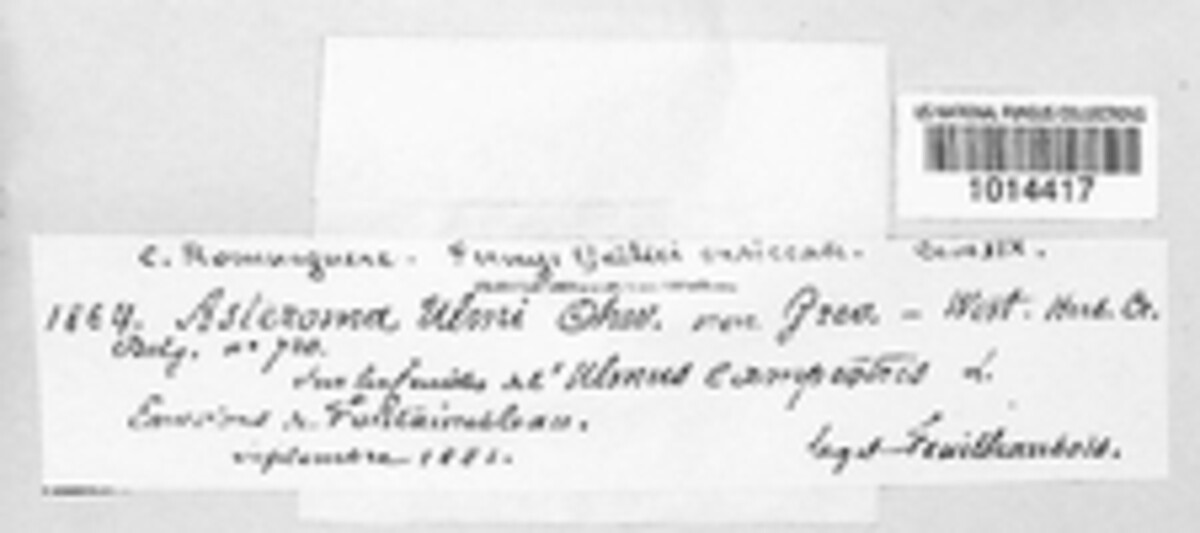 US NATIONAL FUNGUS COLLECTIONS
1014417
C. Roumeguere. - Fungi Gallici exsiccati. -
1864. Asteroma Ulmi Chev. non Grev. - West. Herb. Cr.
Belg. no
sur les feuilles de l'Ulmus campestris L.
Environs de Fontainebleau.
septembre 1881.
legit Feuilleaubois.